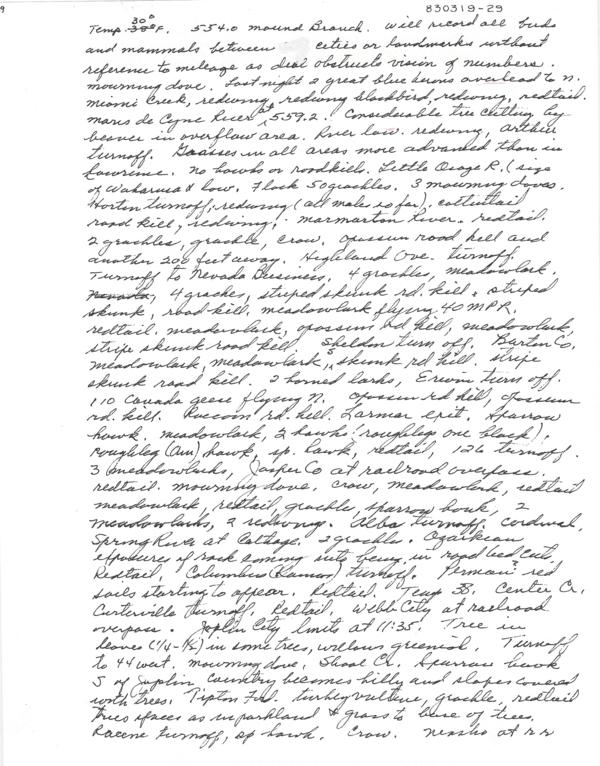 9
830319-29
Temp. 30° 38° F. 554.0 mound Branch. Will record all birds
and mammals between cities or landmarks without
reference to mileage as dial obstructs vision of numbers.
mourning dove. Last night 2 great blue herons overhead to n.
miami Creek, redwing, redwing blackbird, redwing, redtail.
maris de Cygne River at 559.2. Considerable tree cutting by
beaver in overflow area. River low. redwing, Arthur
turnoff. Grasses in all areas more advanced than in
Lawrence. no hawks or roadkills. Little Osage R. (size
of Wakarusa & low. Flock 50 grackles. 3 mourning doves.
Horton turnoff, redwing (all males so far), cottontail
road kill, redwing, marmarton River. redtail.
2 grackles, grackle, crow. opossum road kill and
another 200 feet away. Highland Ave. turnoff.
Turnoff to Nevada Business, 4 grackles, meadowlark.
Nevada, 4 grackles, striped skunk rd. kill, striped
skunk, road kill. meadowlark flying 40 MPR.
redtail. meadowlark, opossum rd kill, meadowlark,
stripe skunk road kill. Sheldon turn off. Barton Co.
meadowlark, meadowlark, skunk rd kill. stripe
skunk road kill. 2 horned larks, Erwin turn off.
110 Canada geese flying N. opossum rd kill, opossum
rd. kill. Raccoon rd. kill. Larmar exit. Sparrow
hawk. meadowlark, 2 hawks (roughleg one black),
roughleg hawk, sp. hawk, redtail, 126 turnoff.
3 meadowlarks, Jasper Co at railroad overpass.
redtail. mourning dove, crow, meadowlark, redtail
meadowlark, redtail, grackle, sparrow hawk, 2
meadowlarks, 2 redwing. Alba turnoff. Cardinal,
Spring River at Carthage. 2 grackles. Ozarkian
exposures of rock coming into being in road bed cuts.
Redtail, Columbus (Kansas) turnoff. Permian? red
soils starting to appear. Redtail. Temp 38. Center Cr.
Carterville turnoff. Redtail. Webb City at railroad
overpass. Joplin City limits at 11:35. Tree in
leaves (1/4-1/2) in some trees, willows greenish. Turnoff
to 44 west. mourning dove, Shoal Cr. Sparrow hawk
S of Joplin country becomes hilly and slopes covered
with trees. Tipton Ford. turkey vulture, grackle, redtail
trees spaces as in parkland & grass to base of trees.
Racine turnoff, sp hawk. Crow. neosho at rr